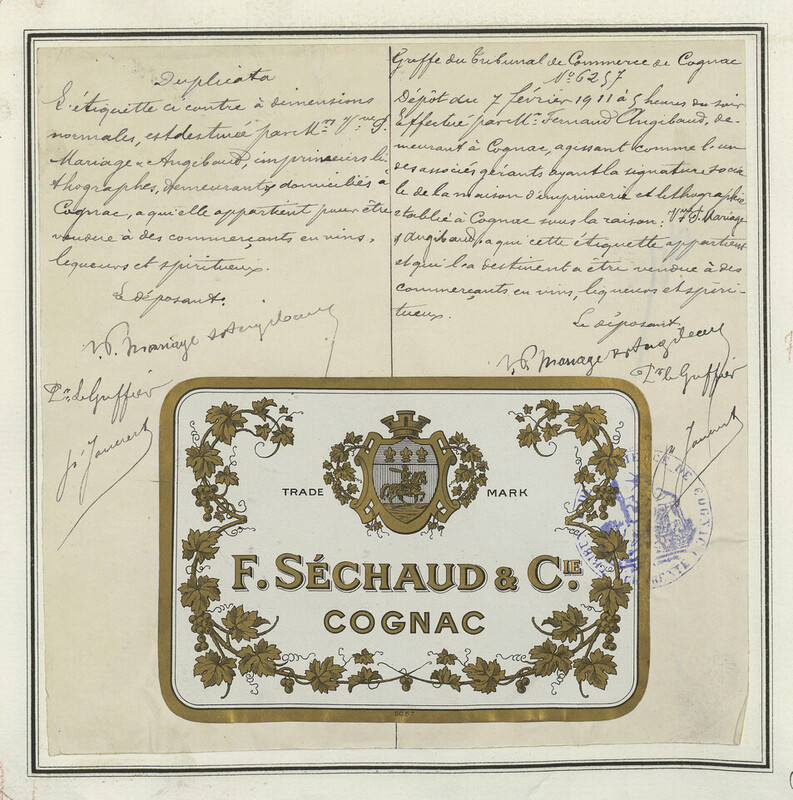 Duplicata
L'étiquette ci contre à dimensions
normales, est destinée par Mrs Vve P.
Mariage & Angibaud, imprimeurs li-
thographes, demeurants domiciliés à
Cognac, a qu'elle appartient pour être
vendue à des commerçants en vins,
liqueurs et spiritueux.
Le déposant.
V. P. Mariage & Angibaud
Pr. le Greffier
Greffe du Tribunal de Commerce de Cognac
No 6257
Dépôt du 7 février 1911 à 5 heures du soir
Effectué par Mr. Fernand Angibaud, de-
meurant à Cognac, agissant comme l'un
des associés gérants ayant la signature socia-
le de la maison d'imprimerie et lithographie
établie à Cognac sous la raison: Vve P. Mariage
& Angibaud, a qui cette étiquette appartient
et qui la destinent a être vendue à des
commerçants en vins, liqueurs et spiri-
tueux.
Le déposant
V. P. Mariage & Angibaud
Pr. le Greffier
TRADE MARK
F. SÉCHAUD & CIE.
COGNAC
COMMERCE DE COGNAC
CHARENTE